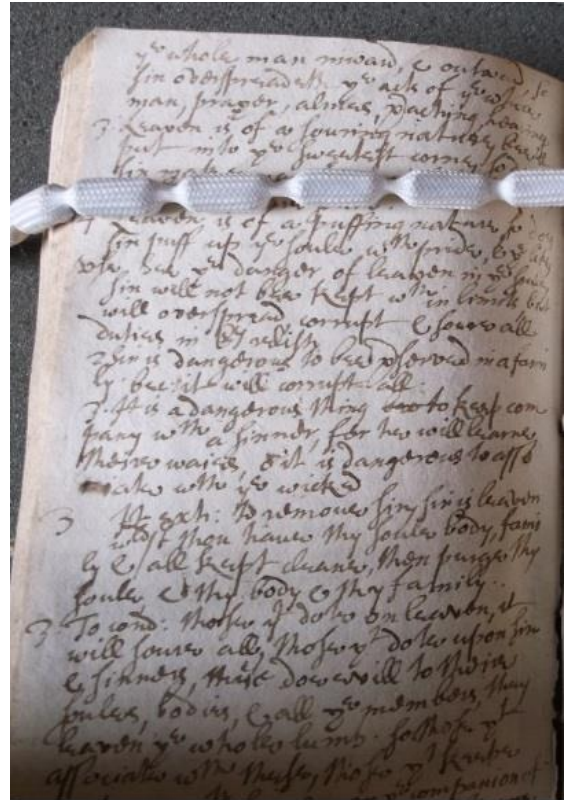 yͤ whole man inward, & outward, so
sin overspreadeth yͤ acts of yͤ whole
man, prayer, almes, preaching, hearing
3. Leaven is of a souring nature, bee it
put into yͤ sweetest corne, so
sin make
Leaven is of a puffing nature, so doth
sin puff up yͤ soule wᵗʰ pride,
vse. see yͤ danger of leaven in yͤ soule
sin will not bee kept wᵗʰin limits but
will overspread corrupt & soure all
duties in
2 sin is dangerous to bee pserved in a fami
ly bec: it will corrupt all.
3. It is a dangerous thing to keep com
pany wᵗʰ a sinner, for hee will learne,
theire waies, & it is dangerous to asso
ciate wᵗʰ yͤ wicked
3 Hexh: To remove sin, sin is leaven
wldst thou have thy soule body, fami
ly & all kept cleane, then purge thy
soule & thy body & thy family.
3 To cond: those yᵗ dote on leaven, it
will soure all, those yᵗ dote upon sin
& sinners, these doe evill to theire
soules, bodies, & all yͤ members, they
leaven yͤ whole lump. so those yᵗ
associate wᵗʰ these, those yᵗ
yͤ companion of